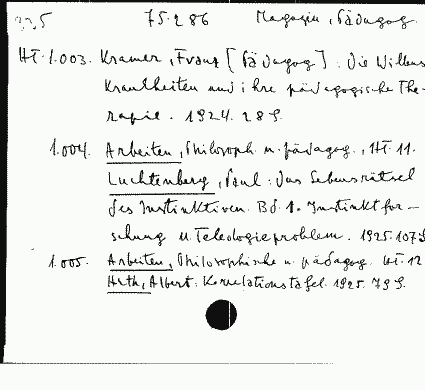 335 75.286 Magazin, Pädagog.
Ht. 1.003. Kramer, Franz [Pädagog]: Die Willens
Krankheiten und ihre pädagogische The-
rapie. 1924. 28 S.
1.004. Arbeiten, Philosoph. u. pädagog., Ht. 11.
Luchtenberg, Paul: Das Lebensrätsel
des Instinktiven. Bd. 1. Instinktfor-
schung u. Teleologieproblem. 1925. 107 S
1.005. Arbeiten, Philosophische u. pädagog. Ht. 12
Huth, Albert: Korrelationstafel. 1925. 79 S.